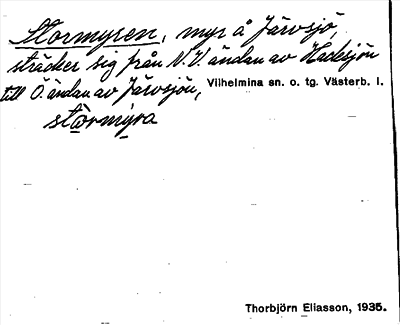 Stormyren, myr å Järvsjö,
sträcker sig från N.V. ändan av Hacksjön
till Ö. ändan av Järvsjön,
Vilhelmina sn. o. tg. Västerb. l.
stormyra
Thorbjörn Eliasson, 1935.